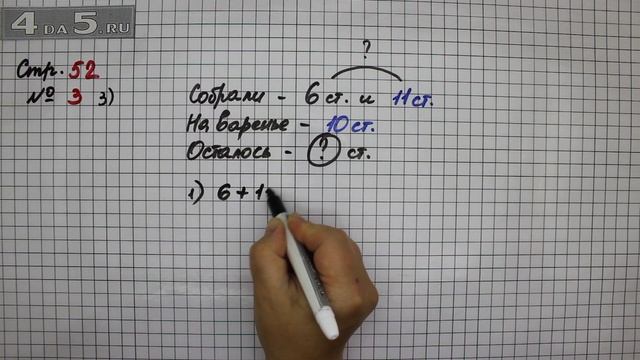 4 DA 5.RU
?
Стр. 52
№ 3 3)
Собрали - 6 ст. и 11 ст.
На варенье - 10 ст.
Осталось - ? ст.
1) 6 + 1